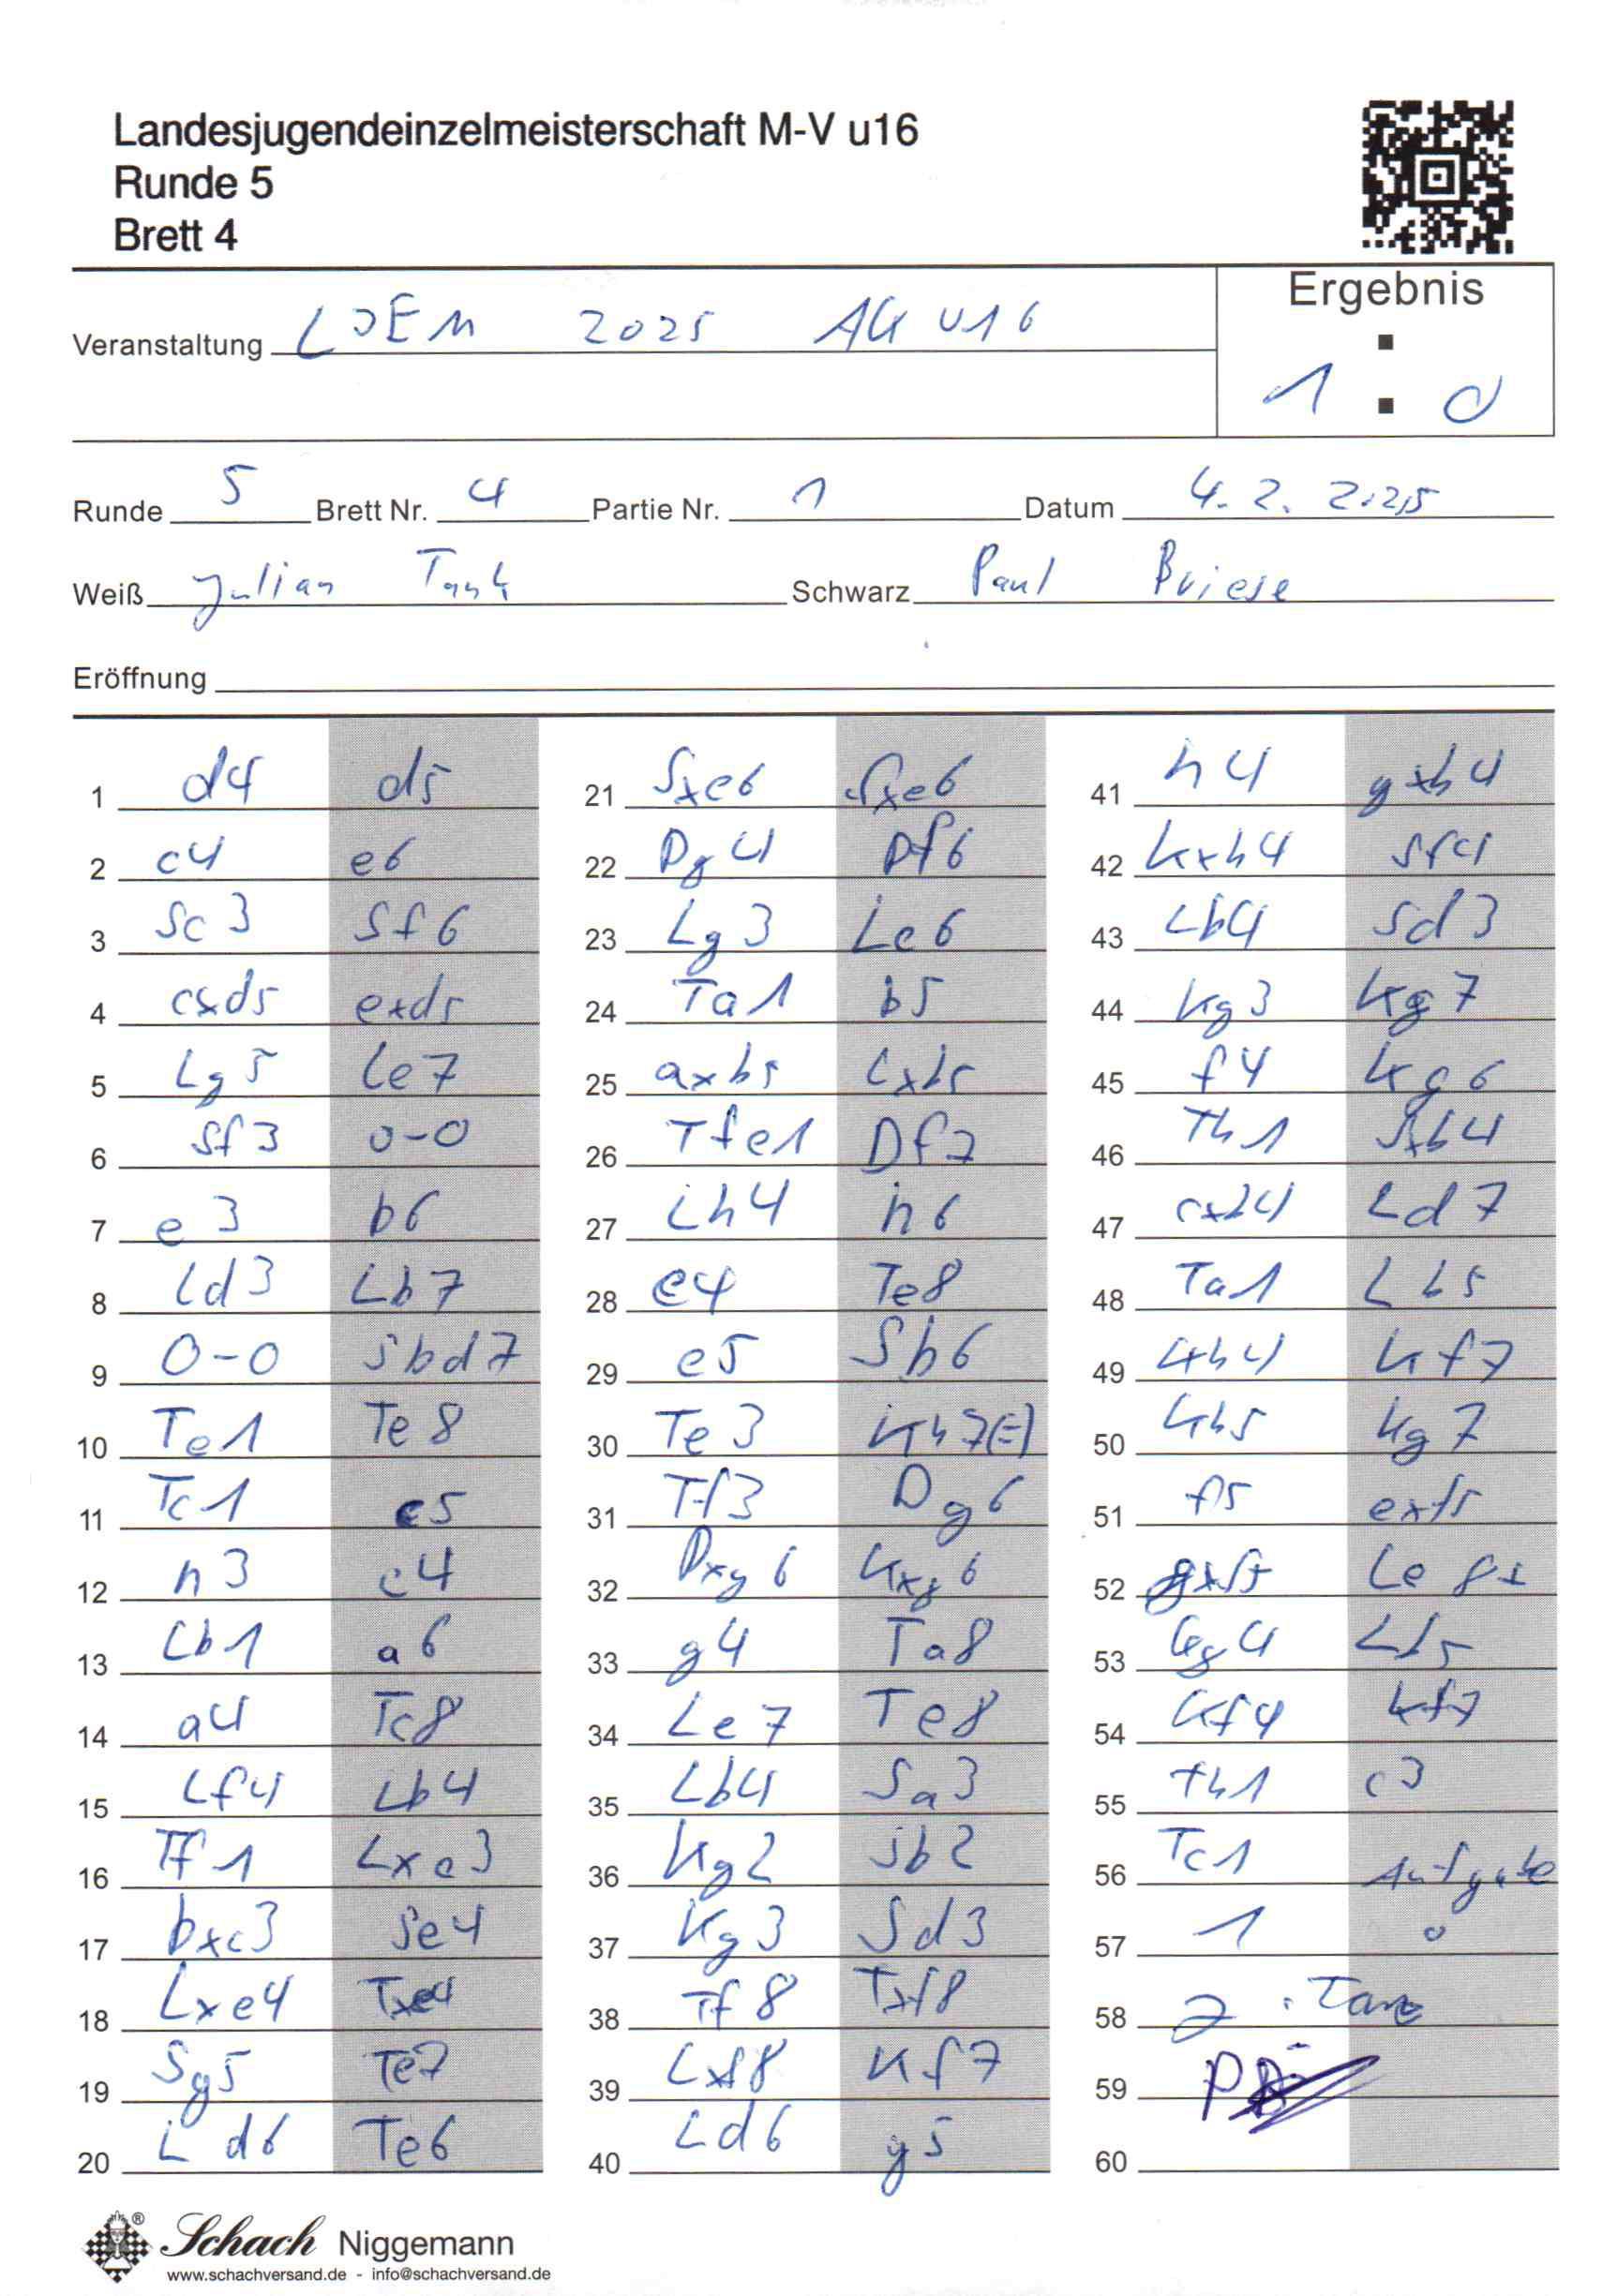 Landesjugendeinzelmeisterschaft M-V u16
Runde 5
Brett 4
Ergebnis
:
Veranstaltung LJEM 2025 AK U16
1 : 0
Runde 5 Brett Nr. 4 Partie Nr. 1 Datum 4. 2. 2025
Weiß Julian Tank Schwarz Paul Briese
Eröffnung
1 d4 d5
2 c4 e6
3 Sc3 Sf6
4 cxd5 exd5
5 Lg5 Le7
6 Sf3 0-0
7 e3 b6
8 Ld3 Lb7
9 0-0 Sbd7
10 Te1 Te8
11 Tc1 c5
12 h3 c4
13 Lb1 a6
14 a4 Tc8
15 Lf4 Lb4
16 Tf1 Lxc3
17 bxc3 Se4
18 Lxe4 Txe4
19 Sg5 Te7
20 Ld6 Te6
21 Sxe6 fxe6
22 Dg4 Df6
23 Lg3 Lc6
24 Ta1 b5
25 axb5 Lxb5
26 Tfe1 Df7
27 Lh4 h6
28 e4 Te8
29 e5 Sb6
30 Te3 Kh7(=)
31 Tf3 Dg6
32 Dxg6 Kxg6
33 g4 Ta8
34 Le7 Te8
35 Lb4 Sa3
36 Kg2 Sb2
37 Kg3 Sd3
38 Tf8 Txf8
39 Lxf8 Kf7
40 Ld6 g5
41 h4 gxh4
42 Kxh4 Sf4
43 Lb4 Sd3
44 Kg3 Kg7
45 f4 Kg6
46 Th1 Sxb4
47 cxb4 Ld7
48 Ta1 Lb5
49 Kh4 Kf7
50 Kh5 Kg7
51 f5 exf5
52 gxf5 Le8+
53 Kg4 Lb5
54 Kf4 Kf7
55 Th1 c3
56 Tc1 Aufgabe
57 1 0
58 J. Tank
59
60
Schach Niggemann
www.schachversand.de - info@schachversand.de